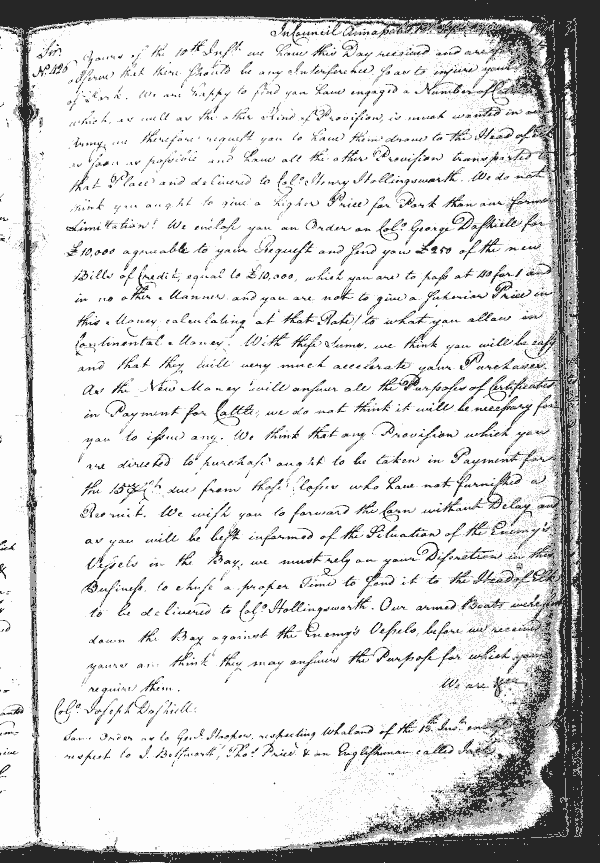 In Council Annapolis
Sir
Yours of the 10th Inst. we have this Day received and are
No. 426
observe that there should be any Interference so as to injure your
of Work. We are happy to find you have engaged a Number of
which, as well as the other Kind of Provision, is much wanted in
Army, we therefore request you to have them drove to the Head of Elk
as soon as possible and have all the other Provision transported to
that Place and delivered to Colo. Henry Hollingsworth. We do not
think you ought to give a higher Price for Pork than our former
Limitation. We inclose you an Order on Colo. George Dashiell for
£10,000 agreeable to your Request and send you £250 of the new
Bills of Credit, equal to £10,000, which you are to pass at 40 for 1 and
in no other Manner and you are not to give a superior Price in
this Money, calculating at that Rate, to what you allow in
Continental Money. With these Sums, we think you will be easy
and that they will very much accelerate your Purchases.
As the New Money will answer all the Purposes of Certificates
in Payment for Cattle, we do not think it will be necessary for
you to issue any. We think that any Provision which you
are directed to purchase ought to be taken in Payment for
the due from those Classes who have not furnished a
Recruit. We wish you to forward the Corn without Delay and
as you will be best informed of the Situation of the Enemy's
Vessels in the Bay, we must rely on your Discretion in this
Business, to chuse a proper Time to send it to the Head of Elk
to be delivered to Colo. Hollingsworth. Our armed Boats were
down the Bay against the Enemy's Vessels, before we received
yours and think they may answer the Purpose for which you
require them.
We are
Colo. Joseph Dashiell.
Same Order as to Genl. Hooper, respecting Whaland of the 13th Inst.
respect to J. Thos. Price & an Englishman called Jack